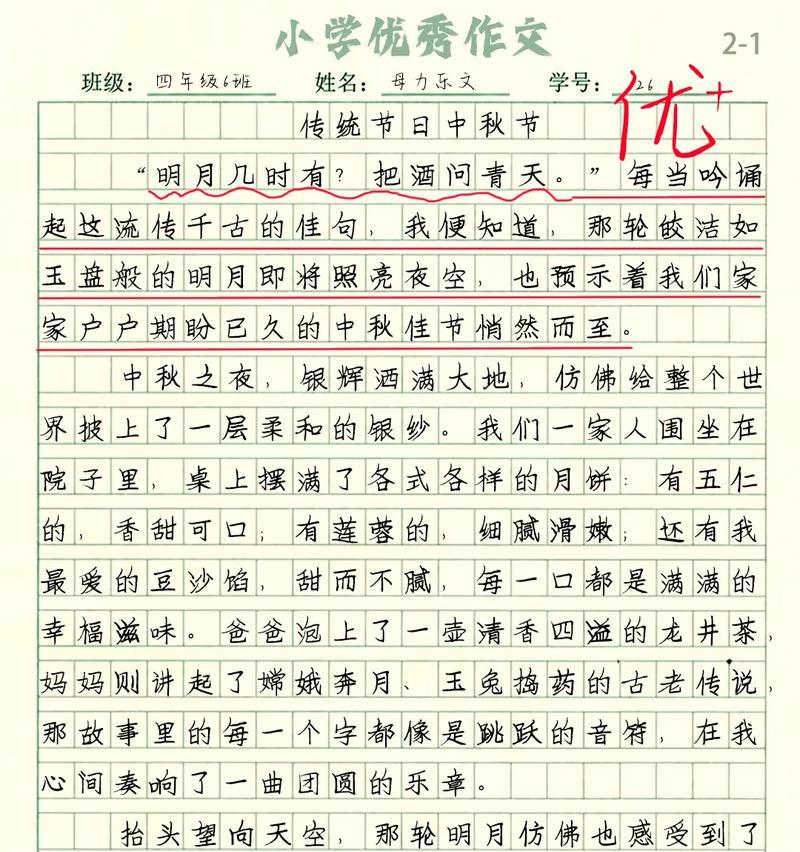 小学优秀作文
2-1
班级：四年级6班 姓名：母力乐文 学号：26
优+
传统节日中秋节
“明月几时有？把酒问青天。”每当吟诵
起这流传千古的佳句，我便知道，那轮皎洁如
玉盘般的明月即将照亮夜空，也预示着我们家
家户户期盼已久的中秋佳节悄然而至。
中秋之夜，银辉洒满大地，仿佛给整个世
界披上了一层柔和的银纱。我们一家人围坐在
院子里，桌上摆满了各式各样的月饼：有五仁
的，香甜可口；有莲蓉的，细腻滑嫩；还有我
最爱的豆沙馅，甜而不腻，每一口都是满满的
幸福滋味。爸爸泡上了一壶清香四溢的龙井茶，
妈妈则讲起了嫦娥奔月、玉兔捣药的古老传说，
那故事里的每一个字都像是跳跃的音符，在我
心间奏响了一曲团圆的乐章。
抬头望向天空，那轮明月仿佛也感受到了